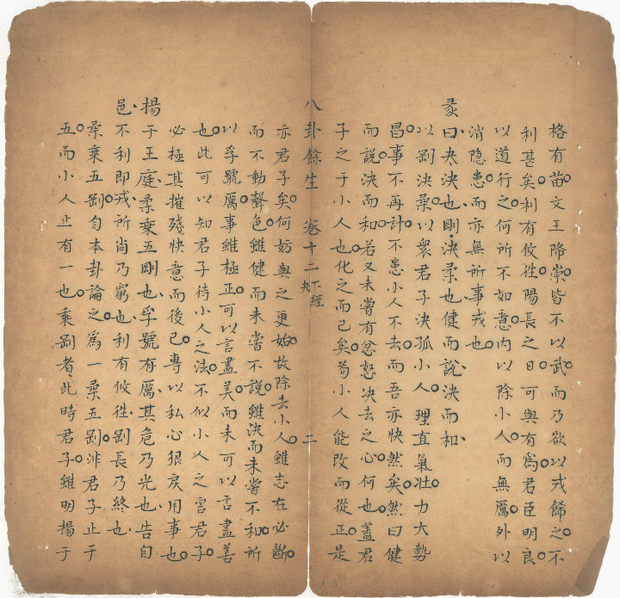 格有苗文王降崇皆不以武而乃欲以戎飾之不
利甚矣利有攸往陽長之日可與有為君臣明良
以道行之何所不如意內以除小人而無厲外以
消隱患而亦無所事戎也
彖曰夬決也剛決柔也健而說決而和
以剛決柔以衆君子決孤小人理直氣壯力大勢
昌事不再計不患小人不去而吾亦快然矣然曰健
而說決而和若又未嘗有忿怒決去之心何也蓋君
子之于小人也化之而已矣苟小人能改而從正是
八卦餘生 卷十二 下經 夬 二
亦君子矣何妨與之更始故除去小人雖志在必斷
而不動聲色雖健而未嘗不說雖決而未嘗不和所
以孚號厲事雖極正可以言盡美而未可以言盡善
也此可以知君子待小人之法不似小人之害君子
必極其摧殘快意而後已專以私心狠戾用事也
揚于王庭柔乘五剛也孚號有厲其危乃光也告自
邑不利即戎所尚乃窮也利有攸往剛長乃終也
柔乘五剛自本卦論之為一柔五剛非君子止于
五而小人止有一也乘剛者此時君子雖明揚于